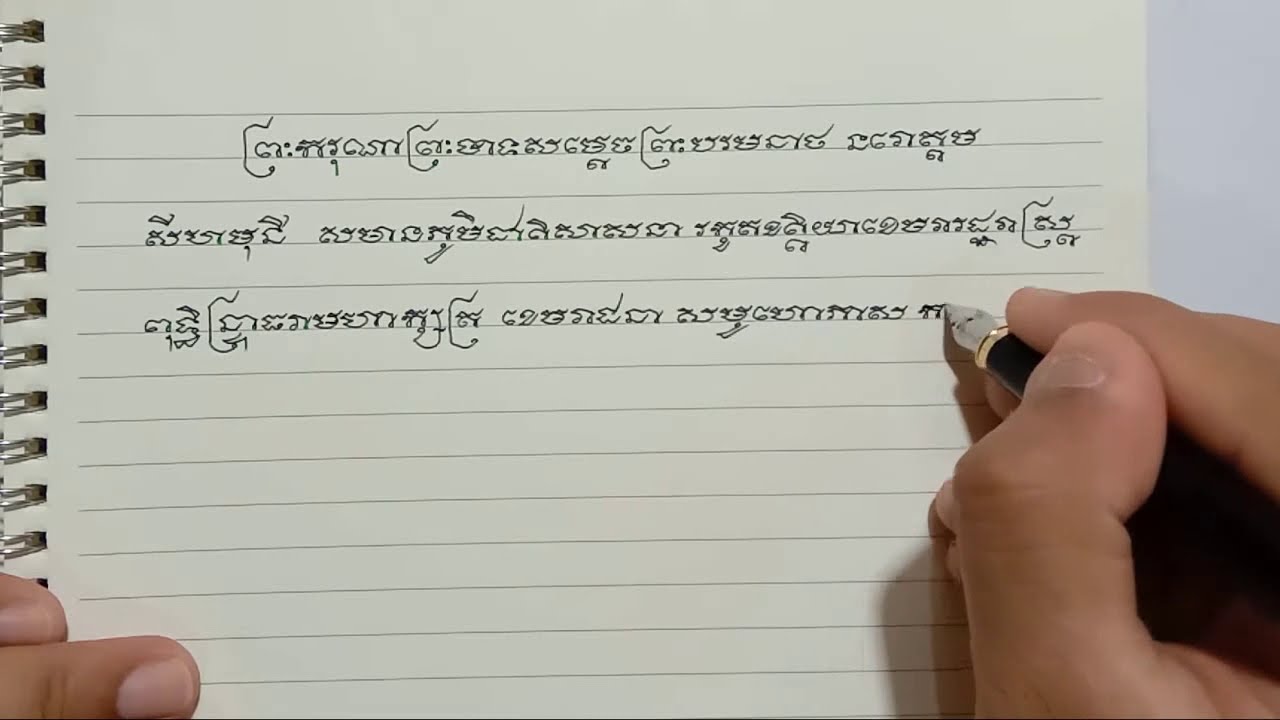 ព្រះករុណាព្រះបាទសម្តេចព្រះបរមនាថ នរោត្តម
សីហមុនី សមានភូមិជាតិសាសនា រក្ខតខត្តិយាខេមរារដ្ឋរាស្ត្រ
ពុទ្ធិន្ទ្រាធរាមហាក្សត្រ ខេមរាជនា សមូហោភាស